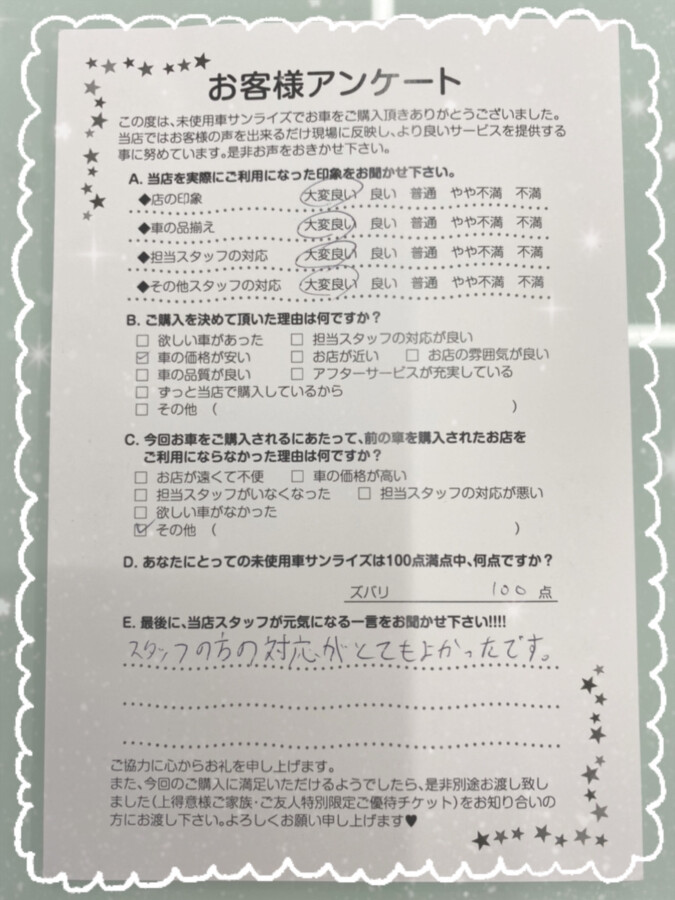 お客様アンケート
この度は、未使用車サンライズでお車をご購入頂きありがとうございました。
当店ではお客様の声を出来るだけ現場に反映し、より良いサービスを提供する
事に努めています。是非お声をおきかせ下さい。
A. 当店を実際にご利用になった印象をお聞かせ下さい。
◆店の印象 大変良い 良い 普通 やや不満 不満
◆車の品揃え 大変良い 良い 普通 やや不満 不満
◆担当スタッフの対応 大変良い 良い 普通 やや不満 不満
◆その他スタッフの対応 大変良い 良い 普通 やや不満 不満
B. ご購入を決めて頂いた理由は何ですか？
□ 欲しい車があった □ 担当スタッフの対応が良い
☑ 車の価格が安い □ お店が近い □ お店の雰囲気が良い
□ 車の品質が良い □ アフターサービスが充実している
□ ずっと当店で購入しているから
□ その他 （ ）
C. 今回お車をご購入されるにあたって、前の車を購入されたお店を
ご利用にならなかった理由は何ですか？
□ お店が遠くて不便 □ 車の価格が高い
□ 担当スタッフがいなくなった □ 担当スタッフの対応が悪い
□ 欲しい車がなかった
☑ その他 （ ）
D. あなたにとっての未使用車サンライズは100点満点中、何点ですか？
ズバリ 100 点
E. 最後に、当店スタッフが元気になる一言をお聞かせ下さい!!!!
スタッフの方の対応がとてもよかったです。
ご協力に心からお礼を申し上げます。
また、今回のご購入に満足いただけるようでしたら、是非別途お渡し致し
ました（上得意様ご家族・ご友人特別限定ご優待チケット）をお知り合いの
方にお渡し下さい。よろしくお願い申し上げます♥